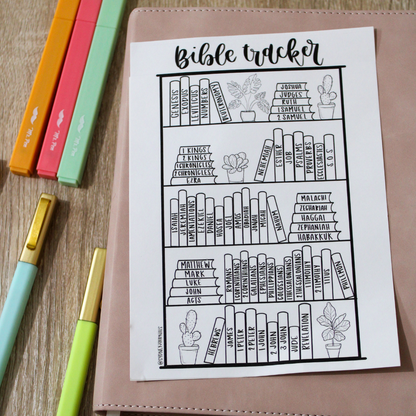 Bible tracker
GENESIS
EXODUS
LEVITICUS
NUMBERS
DEUTERONOMY
JOSHUA
JUDGES
RUTH
1 SAMUEL
2 SAMUEL
1 KINGS
2 KINGS
1 CHRONICLES
2 CHRONICLES
EZRA
NEHEMIAH
ESTHER
JOB
PSALMS
PROVERBS
ECCLESIASTES
S.O.S.
ISAIAH
JEREMIAH
LAMENTATIONS
EZEKIEL
DANIEL
HOSEA
JOEL
AMOS
OBADIAH
JONAH
MICAH
NAHUM
MALACHI
ZECHARIAH
HAGGAI
ZEPHANIAH
HABAKKUK
MATTHEW
MARK
LUKE
JOHN
ACTS
ROMANS
1 CORINTHIANS
2 CORINTHIANS
GALATIANS
EPHESIANS
PHILIPPIANS
COLOSSIANS
1 THESSALONIANS
2 THESSALONIANS
1 TIMOTHY
2 TIMOTHY
TITUS
PHILEMON
HEBREWS
JAMES
1 PETER
2 PETER
1 JOHN
2 JOHN
3 JOHN
JUDE
REVELATION